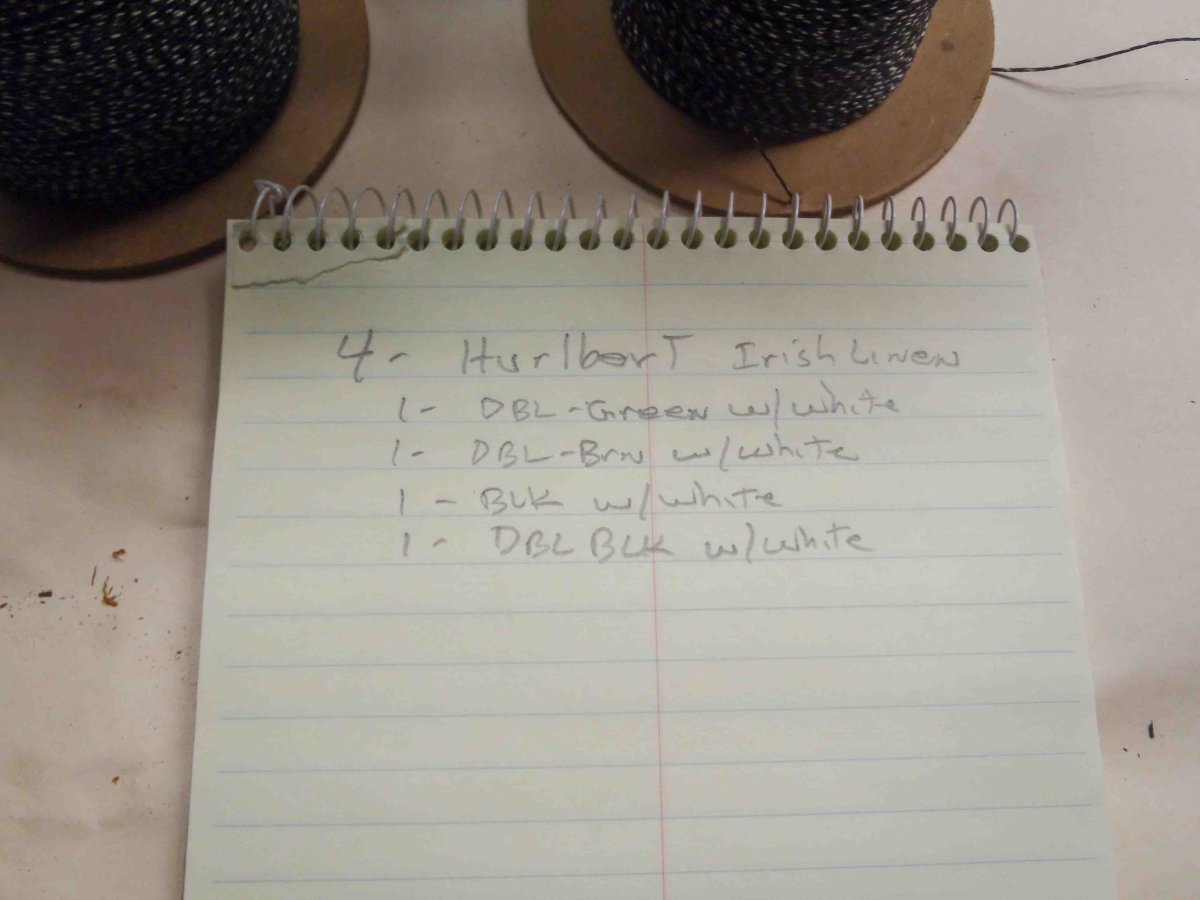 4- Hurlbert Irish Linen
1- DBL-Green w/white
1- DBL-Brn w/white
1- BLK w/white
1- DBL BLK w/white